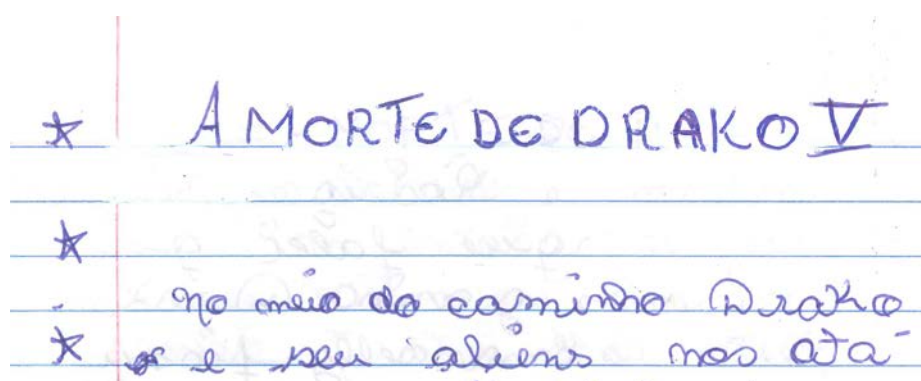 A MORTE DE DRAKO V
no meio do caminho Drako
e seu aliens nos ata